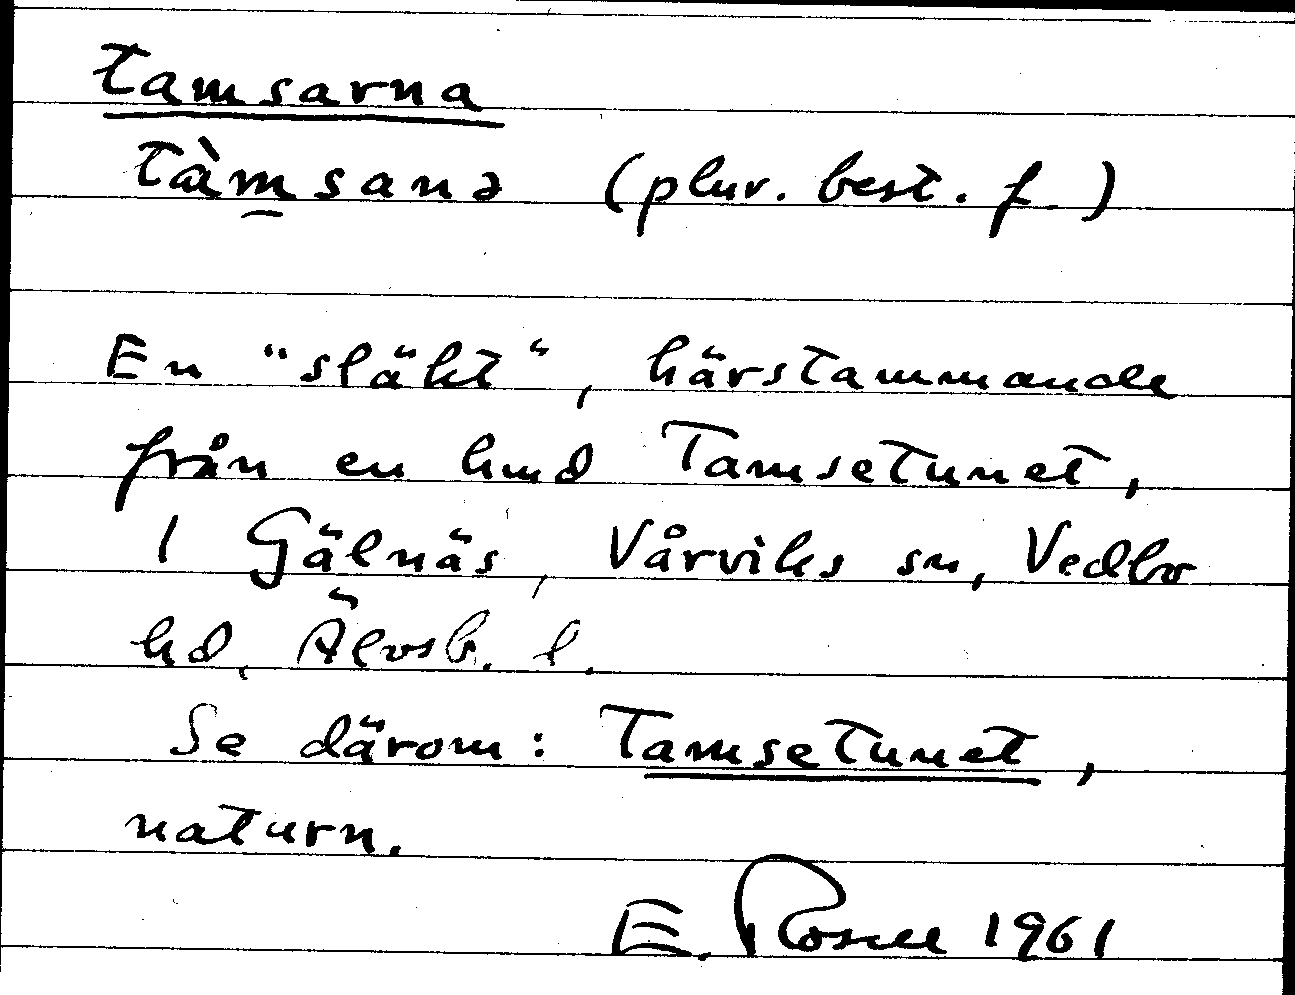 tamsarna
tàm̯sanə (plur. best. f.)
En "släkt", härstammande
från en hmd Tamsetunet,
i Gälnäs, Vårviks sn, Vedbo
hd, Älvsb. l.
Se därom: Tamsetunet,
naturn.
E. Rosell 1961